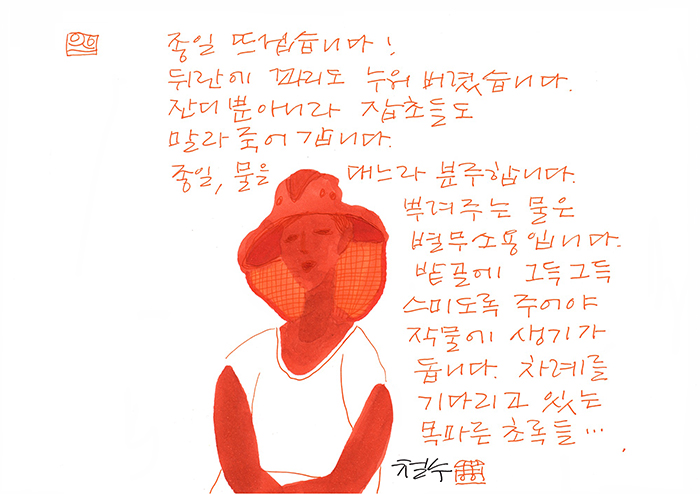 종일 뜨겁습니다!
뒤란에 꽈리도 누워 버렸습니다.
잔디 뿐아니라 잡초들도
말라 죽어 갑니다.
종일, 물을 대느라 분주합니다.
뿌려주는 물은
별무소용입니다.
밭골에 그득그득
스미도록 주어야
작물에 생기가
돕니다. 차례를
기다리고 있는
목마른 초록들…
철수